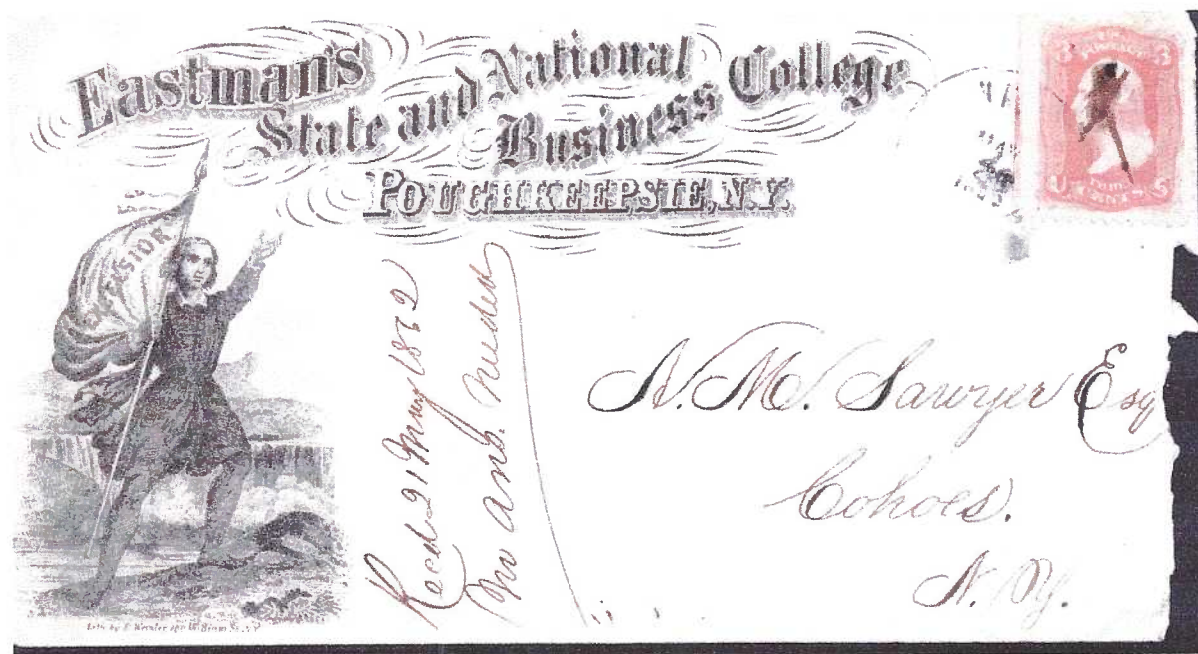 Eastman's
State and National
Business College
POUGHKEEPSIE, N.Y.
EXCELSIOR
3 3
U S
Recd 21 May 1862
No ans. needed
N. M. Sawyer Esq
Cohoes.
N. Y.
Lith. by